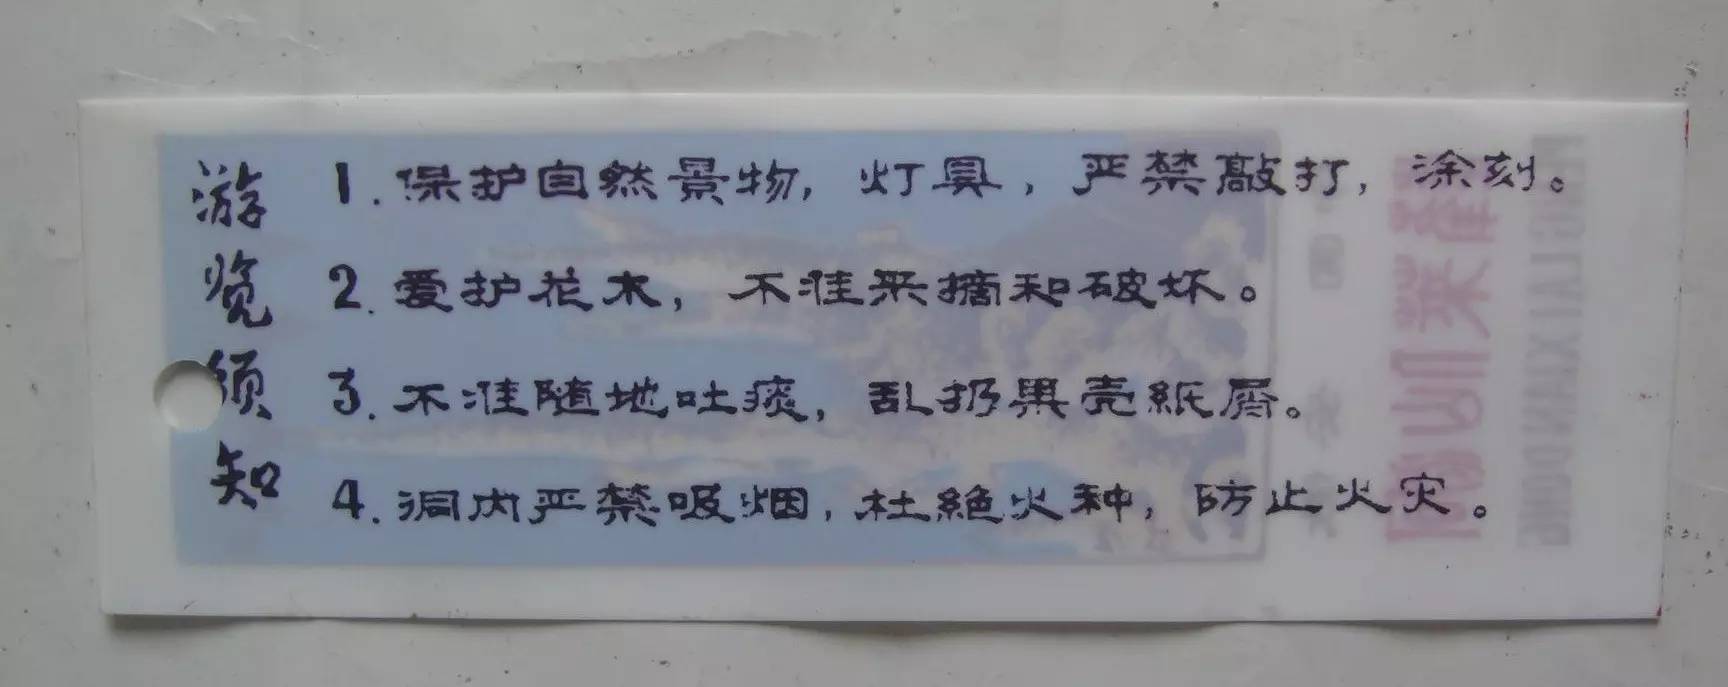 游览须知
1. 保护自然景物，灯具，严禁敲打，涂刻。
2. 爱护花木，不准采摘和破坏。
3. 不准随地吐痰，乱扔果壳紙屑。
4. 洞内严禁吸烟，杜絶火种，防止火灾。
蓬莱仙洞
PENGLAI XIANDONG